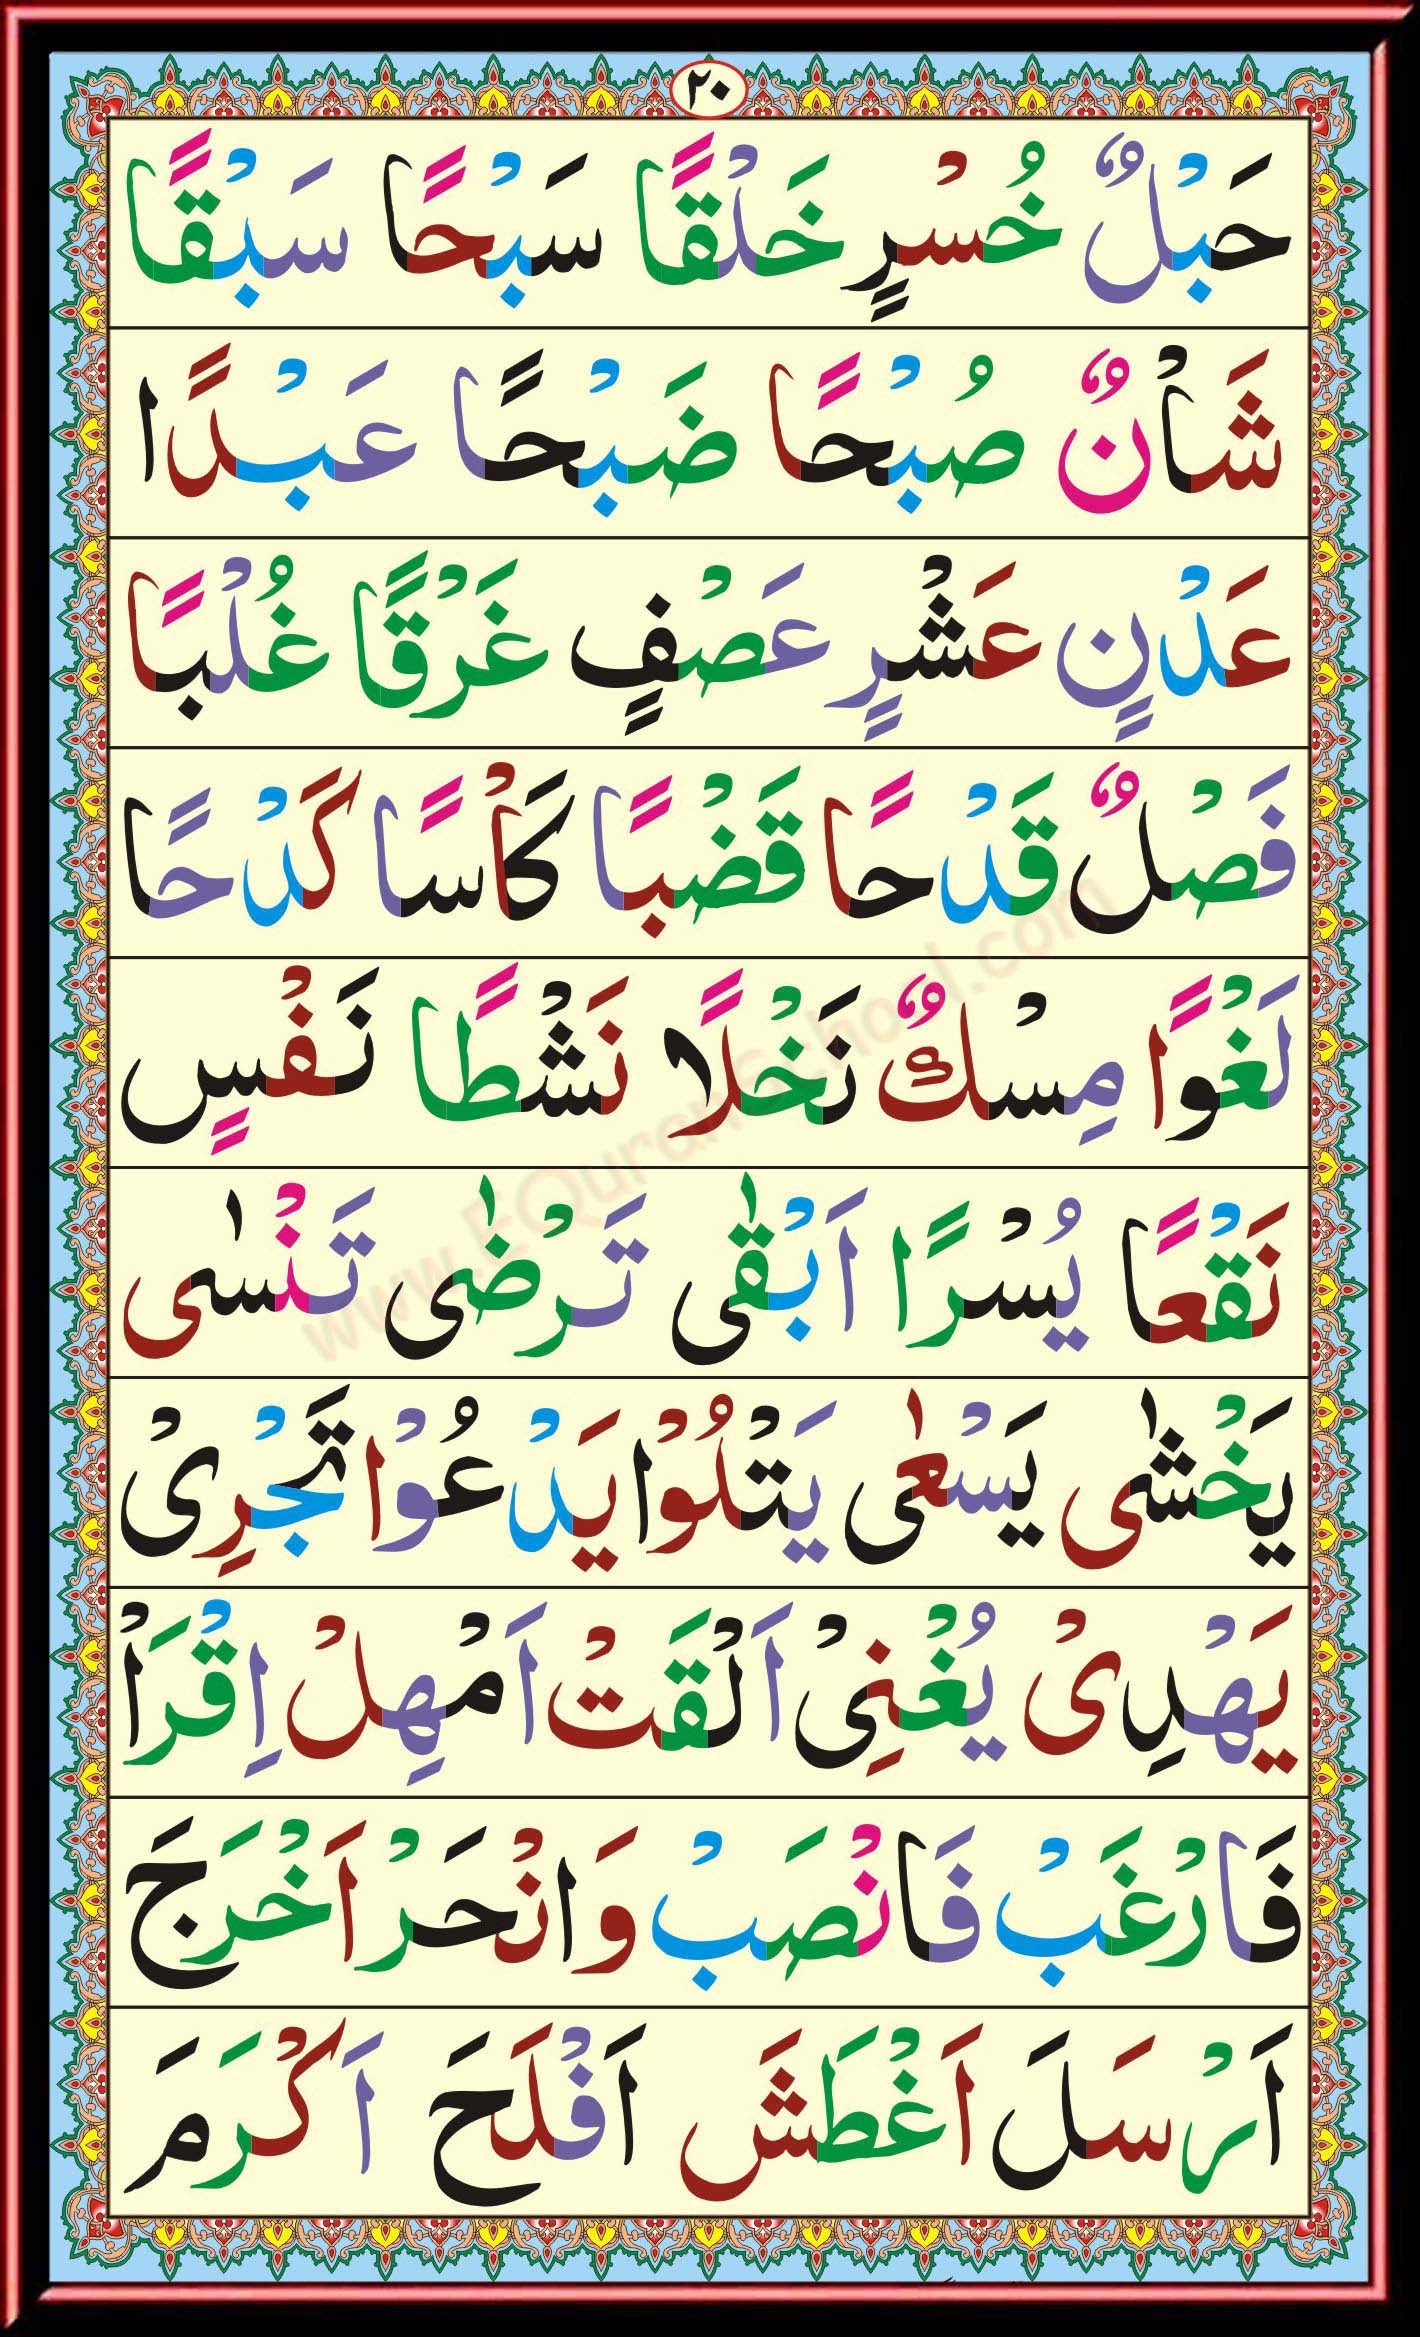 ٢٠
حَبْلٌ خُسْرٍ خَلْقًا سَبْحًا سَبْقًا
شَاْنٌ صُبْحًا ضَبْحًا عَبْدًا
عَدْنٍ عَشْرٍ عَصْفٍ غَرْقًا غُلْبًا
فَصْلٌ قَدْحًا قَضْبًا كَاْسًا كَدْحًا
لَغْوًا مِسْكٌ نَخْلًا نَشْطًا نَفْسٍ
نَقْعًا يُسْرًا اَبْقٰى تَرْضٰى تَنْسٰى
يَخْشٰى يَسْعٰى يَتْلُوْا يَدْعُوْا تَجْرِىْ
يَهْدِىْ يُغْنِىْ اَلْقَتْ اَمْهِلْ اِقْرَاْ
فَارْغَبْ فَانْصَبْ وَانْحَرْ اَخْرَجَ
اَرْسَلَ اَغْطَشَ اَفْلَحَ اَكْرَمَ
www.EQuranSchool.com